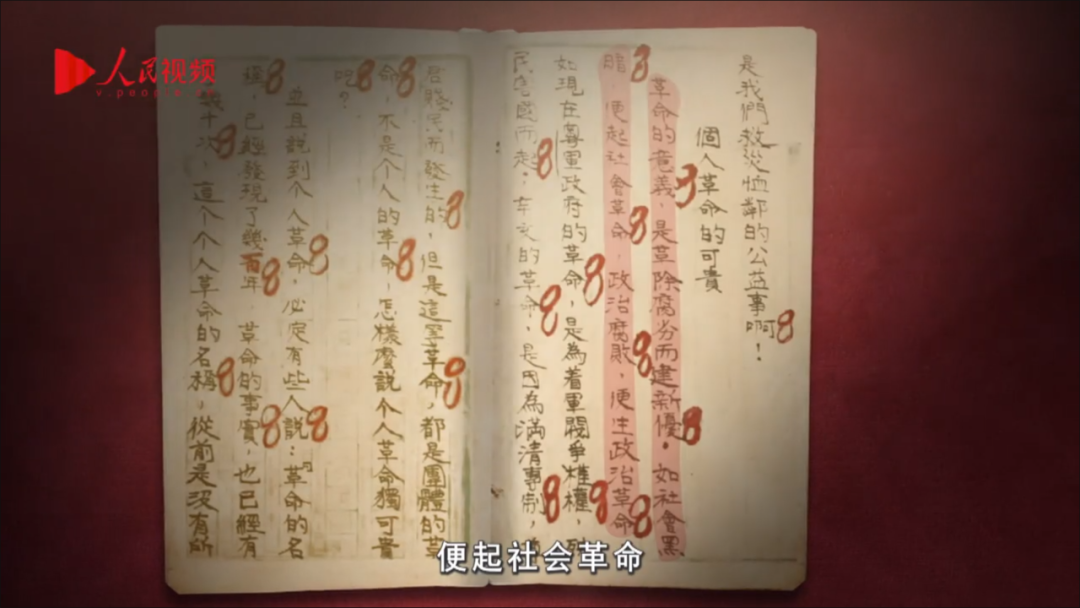 人民视频
v.people.cn
是我們救災恤鄰的公益事啊！
個人革命的可貴
革命的意義，是革除腐劣而建新優。如社會黑
暗，便起社會革命，政治腐敗，便生政治革命
如現在 軍政府的革命，是為着軍閥爭權，
而起；辛亥的革命，是因為滿清專制，
賤民而發生的，但是這等革命，都是團體的革
命，不是个人的革命，怎樣麼說个人革命獨可貴
呢？
並且說到个人革命，必定有些人說：『革命的名
稱，已經發現了幾百年，革命的事實，也已經有
幾十次，這个个人革命的名稱，從前是沒有所
便起社会革命